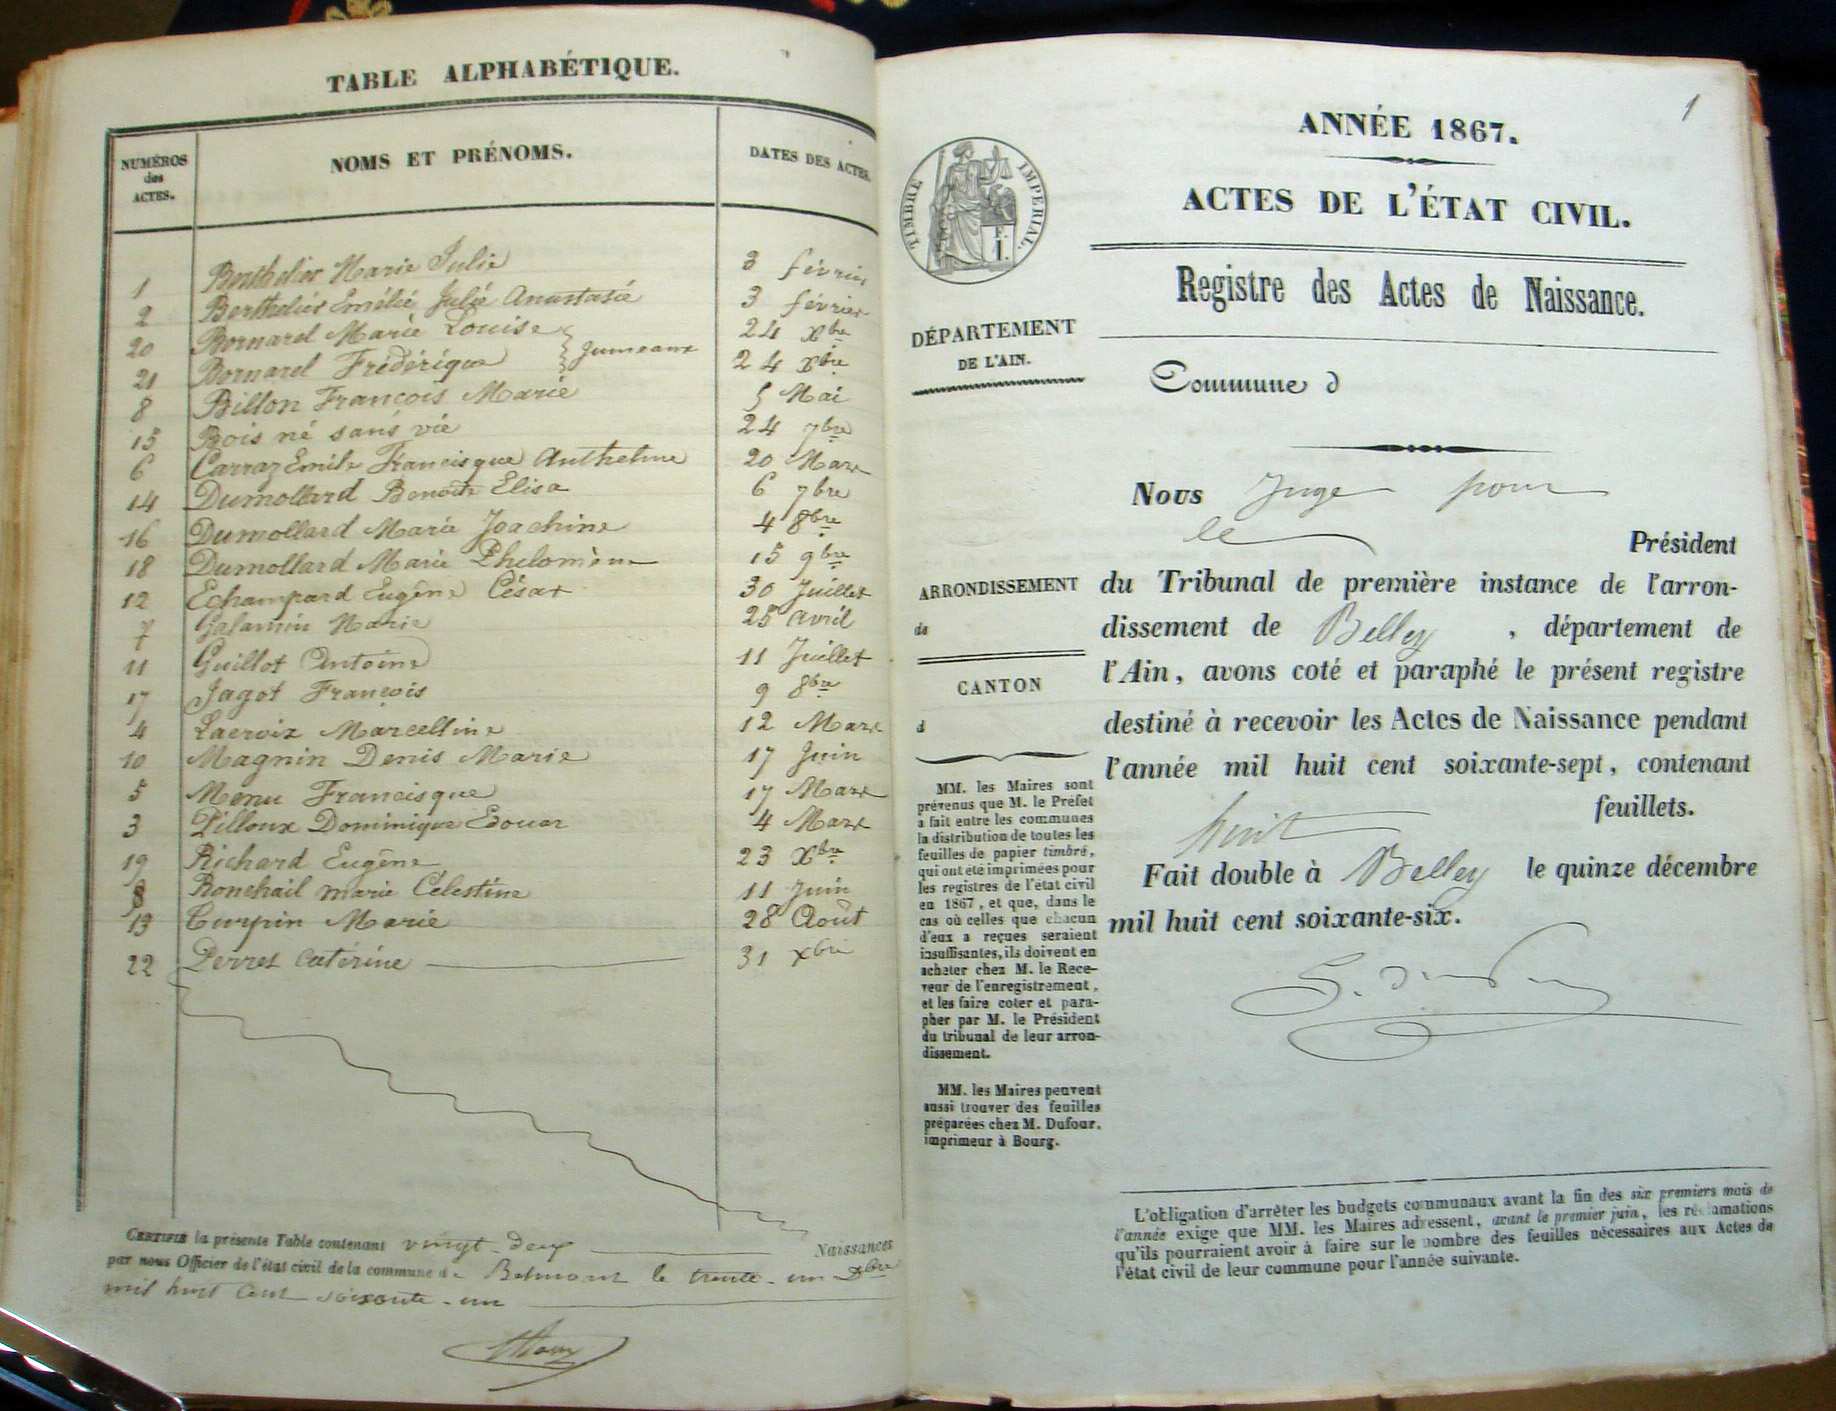 TABLE ALPHABÉTIQUE.
NUMÉROS des ACTES. NOMS ET PRÉNOMS. DATES DES ACTES.
1 Berthelier Marie Julie 3 février
2 Berthelier Emélie Julie Anastasie 3 février
20 Bornarel Marie Louise 24 Xbre
jumeaux
21 Bornarel Frédérique 24 Xbre
8 Billon François Marie 5 Mai
15 Bois né sans vie 24 7bre
6 Carraz Emile Francisque Anthelme 20 Mars
14 Dumollard Benoite Elisa 6 7bre
16 Dumollard Marie Joachine 4 8bre
18 Dumollard Marie Phelomène 15 9bre
12 Echampard Eugène César 30 Juillet
7 Marie 25 avril
11 Guillot Antoine 11 Juillet
17 Jagot François 9 8bre
4 Lacroix Marcelline 12 Mars
10 Magnin Denis Marie 17 Juin
5 Menu Francisque 17 Mars
3 Pilloux Dominique Edouar 4 Mars
19 Richard Eugène 23 Xbre
Ronchail marie Célestine 11 Juin
13 Turpin Marie 28 Août
22 Perret Catérine 31 Xbre
CERTIFIÉ la présente Table contenant vingt-deux Naissances
par nous Officier de l'état civil de la commune de Belmont le trente-un Xbre
mil huit cent soixante-un
1
ANNÉE 1867.
ACTES DE L'ÉTAT CIVIL.
TIMBRE IMPERIAL.
Registre des Actes de Naissance.
DÉPARTEMENT
DE L'AIN.
Commune d
Nous Juge pour
le
Président
ARRONDISSEMENT
de
CANTON
d
du Tribunal de première instance de l'arron-
dissement de Belley , département de
l'Ain, avons coté et paraphé le présent registre
destiné à recevoir les Actes de Naissance pendant
l'année mil huit cent soixante-sept, contenant
huit feuillets.
Fait double à Belley le quinze décembre
mil huit cent soixante-six.
MM. les Maires sont
prévenus que M. le Préfet
a fait entre les communes
la distribution de toutes les
feuilles de papier timbré,
qui ont été imprimées pour
les registres de l'état civil
en 1867, et que, dans le
cas où celles que chacun
d'eux a reçues seraient
insuffisantes, ils doivent en
acheter chez M. le Rece-
veur de l'enregistrement,
et les faire coter et para-
pher par M. le Président
du tribunal de leur arron-
dissement.
MM. les Maires peuvent
aussi trouver des feuilles
préparées chez M. Dufour,
imprimeur à Bourg.
L'obligation d'arrêter les budgets communaux avant la fin des six premiers mois de
l'année exige que MM. les Maires adressent, avant le premier juin, les réclamations
qu'ils pourraient avoir à faire sur le nombre des feuilles nécessaires aux Actes de
l'état civil de leur commune pour l'année suivante.